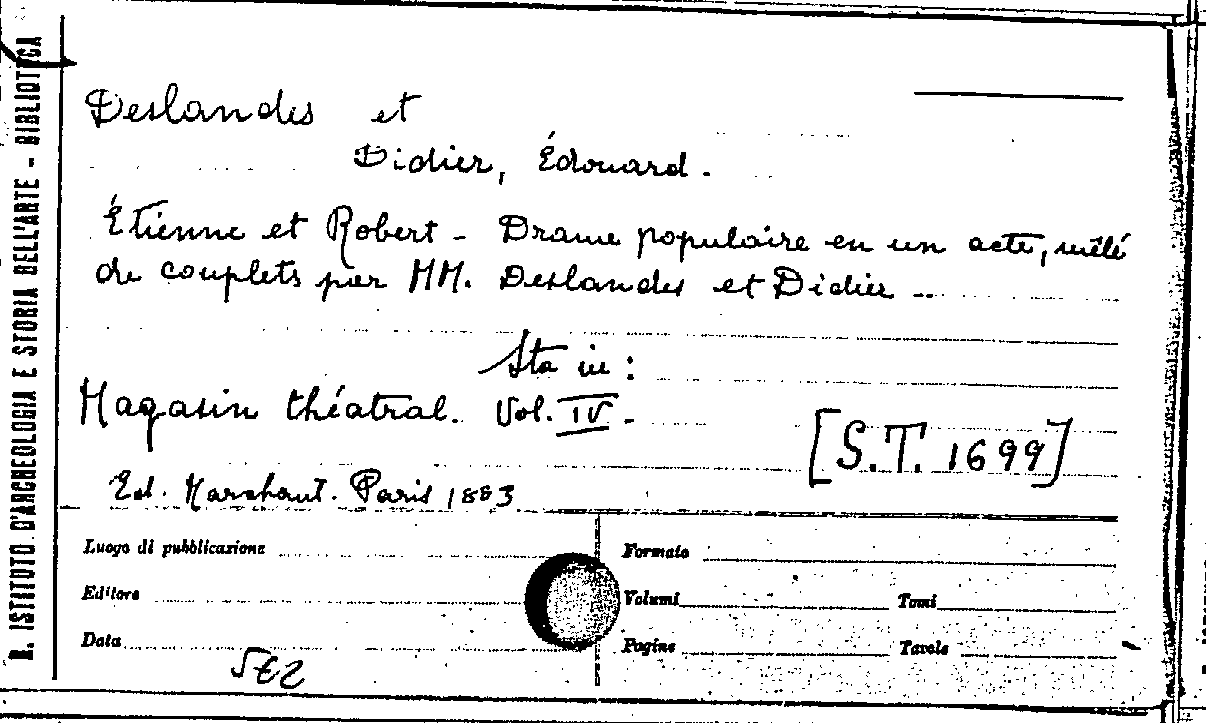 R. ISTITUTO D'ARCHEOLOGIA E STORIA DELL'ARTE - BIBLIOTECA
Deslandes et
Didier, Édouard.
Étienne et Robert - Drame populaire en un acte, mêlé
de couplets par MM. Deslandes et Didier ..
Sta in :
Magasin théatral. Vol. IV.
[S.T. 1699]
Ed. Marchant. Paris 1883
Luogo di pubblicazione
Formato
Editore
Volumi
Tomi
Data
Pagine
Tavole